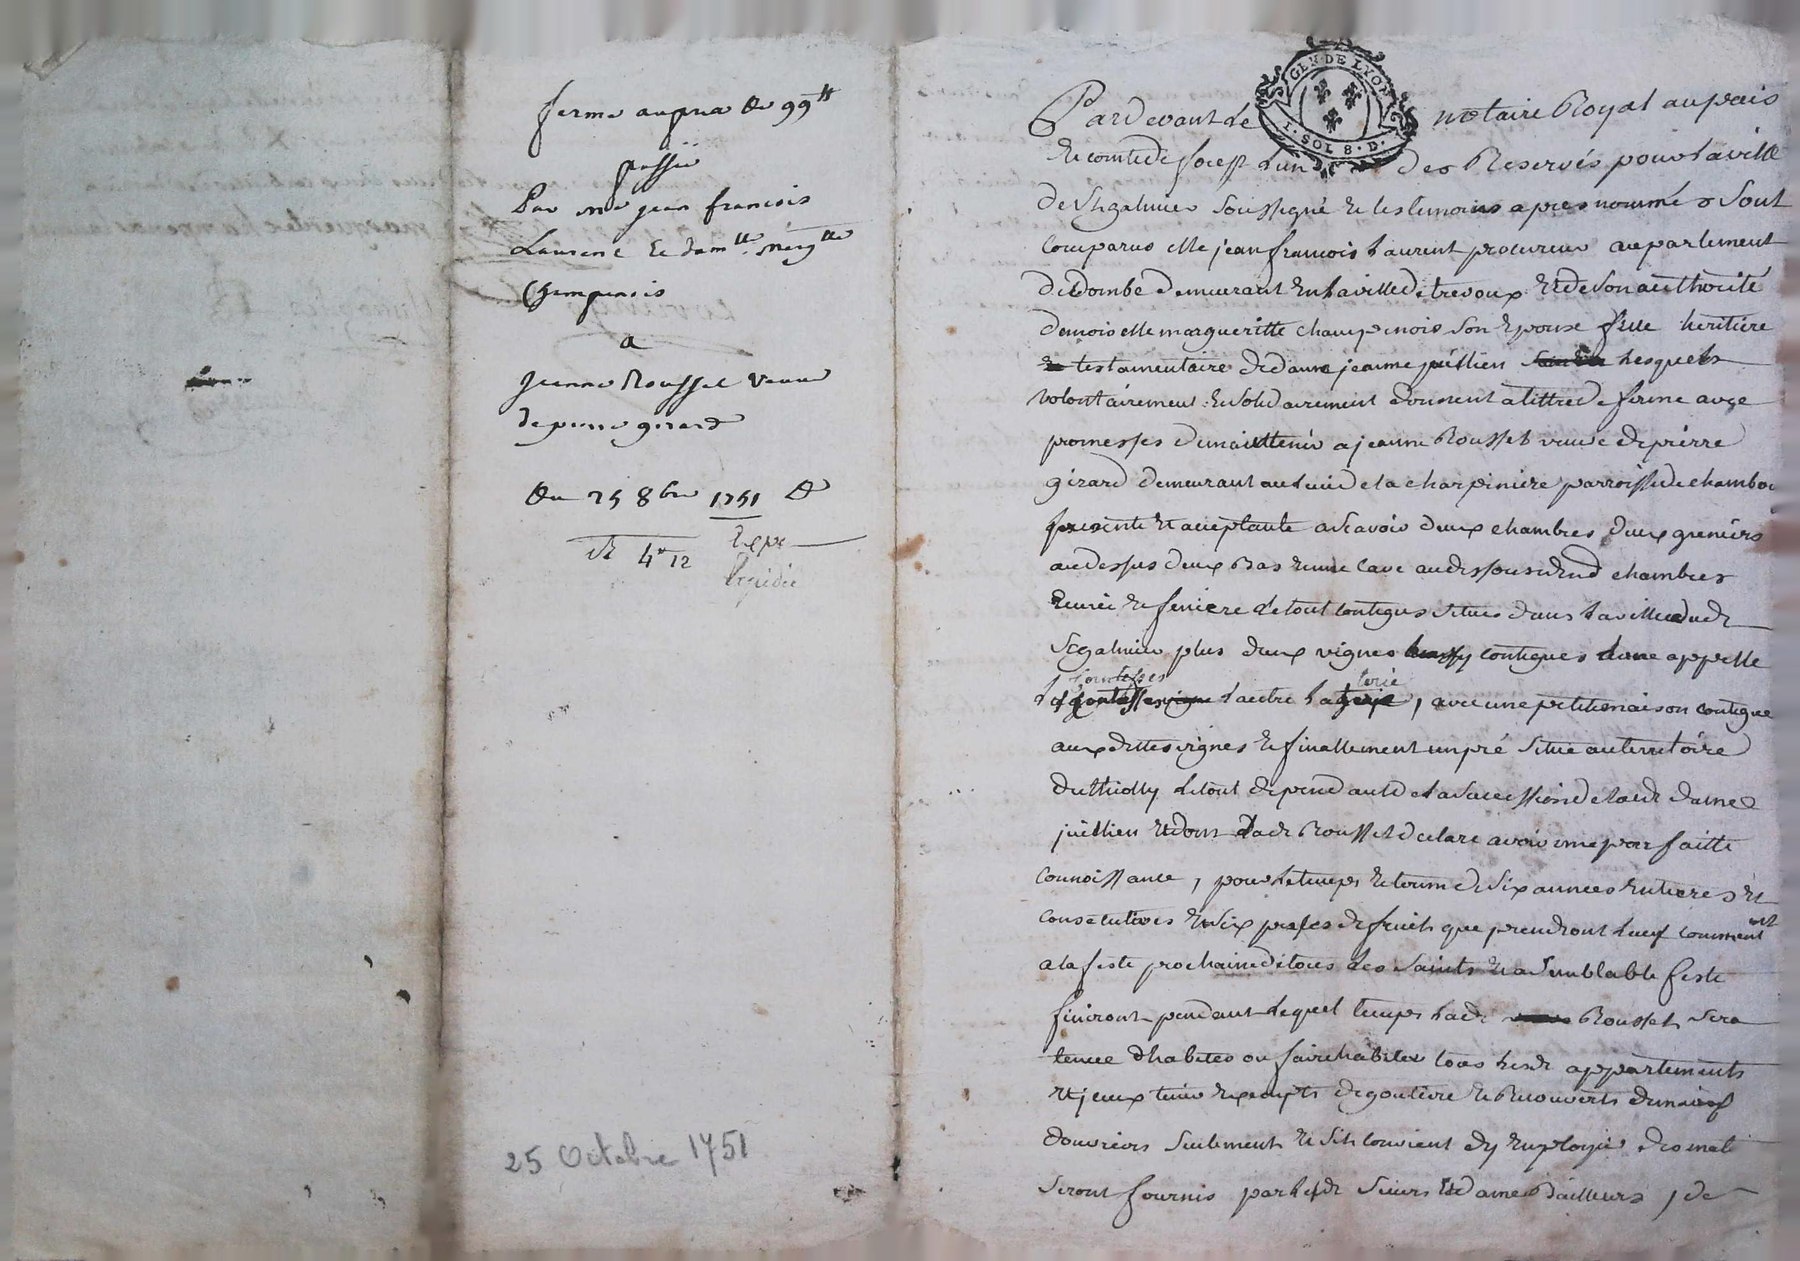 ferme au prix de 99ᵗᵗ
passée
Par me jean francois
Laurent Et damlle. Margtte
Champenois
a
Jeanne Rousset veuve
de pierre girard
Du 25 8bre 1751
4tt 12
Expediée
25 Octobre 1751
GEN. DE LYON
1. SOL 8. D.
Pardevant Le notaire Royal au païs
Et comté de forest L'un des Reservés pour La ville
de St galmier soussigné Et les temoins apres nommés sont
comparus Me jean francois Laurent procureur au parlement
de dombe demeurant En La ville de trevoux Et de son authorité
demoiselle margueritte champenois son Epouse fille heritiére
testamentaire de dame jeanne juillien Lesquels
volontairement Et solidairement donnent a tittre de ferme avec
promesses de maintenir a jeanne Rousset veuve de piérre
girard demeurant au Lieu de la charpiniére parroisse de chambœu
presente Et acceptante a scavoir deux chambres deux greniérs
au dessus deux Bas Et une cave au dessous desd chambres
Ecurie Et feniere Le tout contigus situés dans La ville dudt
St galmier plus deux vignes contigues L'une appellé
Lautre La , avec une petitte maison contigue
aux dittes vignes Et finallement un pré situé au territoire
du Le tout dependant de La succession de Ladt dame
juillien Et dont Ladt Rousset declare avoir une parfaitte
connoissance , pour Le temps Et terme de six années Entiéres Et
consecutives Et six prises de fruits que prendront Leur commencemt
a la feste prochaine de tous Les Saints Et a semblable feste
finiront pendant Lequel temps Ladt Rousset sera
tenue d'habiter ou faire habiter tous Lesdt appartements
Et jceux tenir Exempts de goutiére Et Recouverts de main
douvriers seulement Et s'il convient dy Employer des mat
seront fournis par Lesdt sieurs Et dame Bailleurs , de